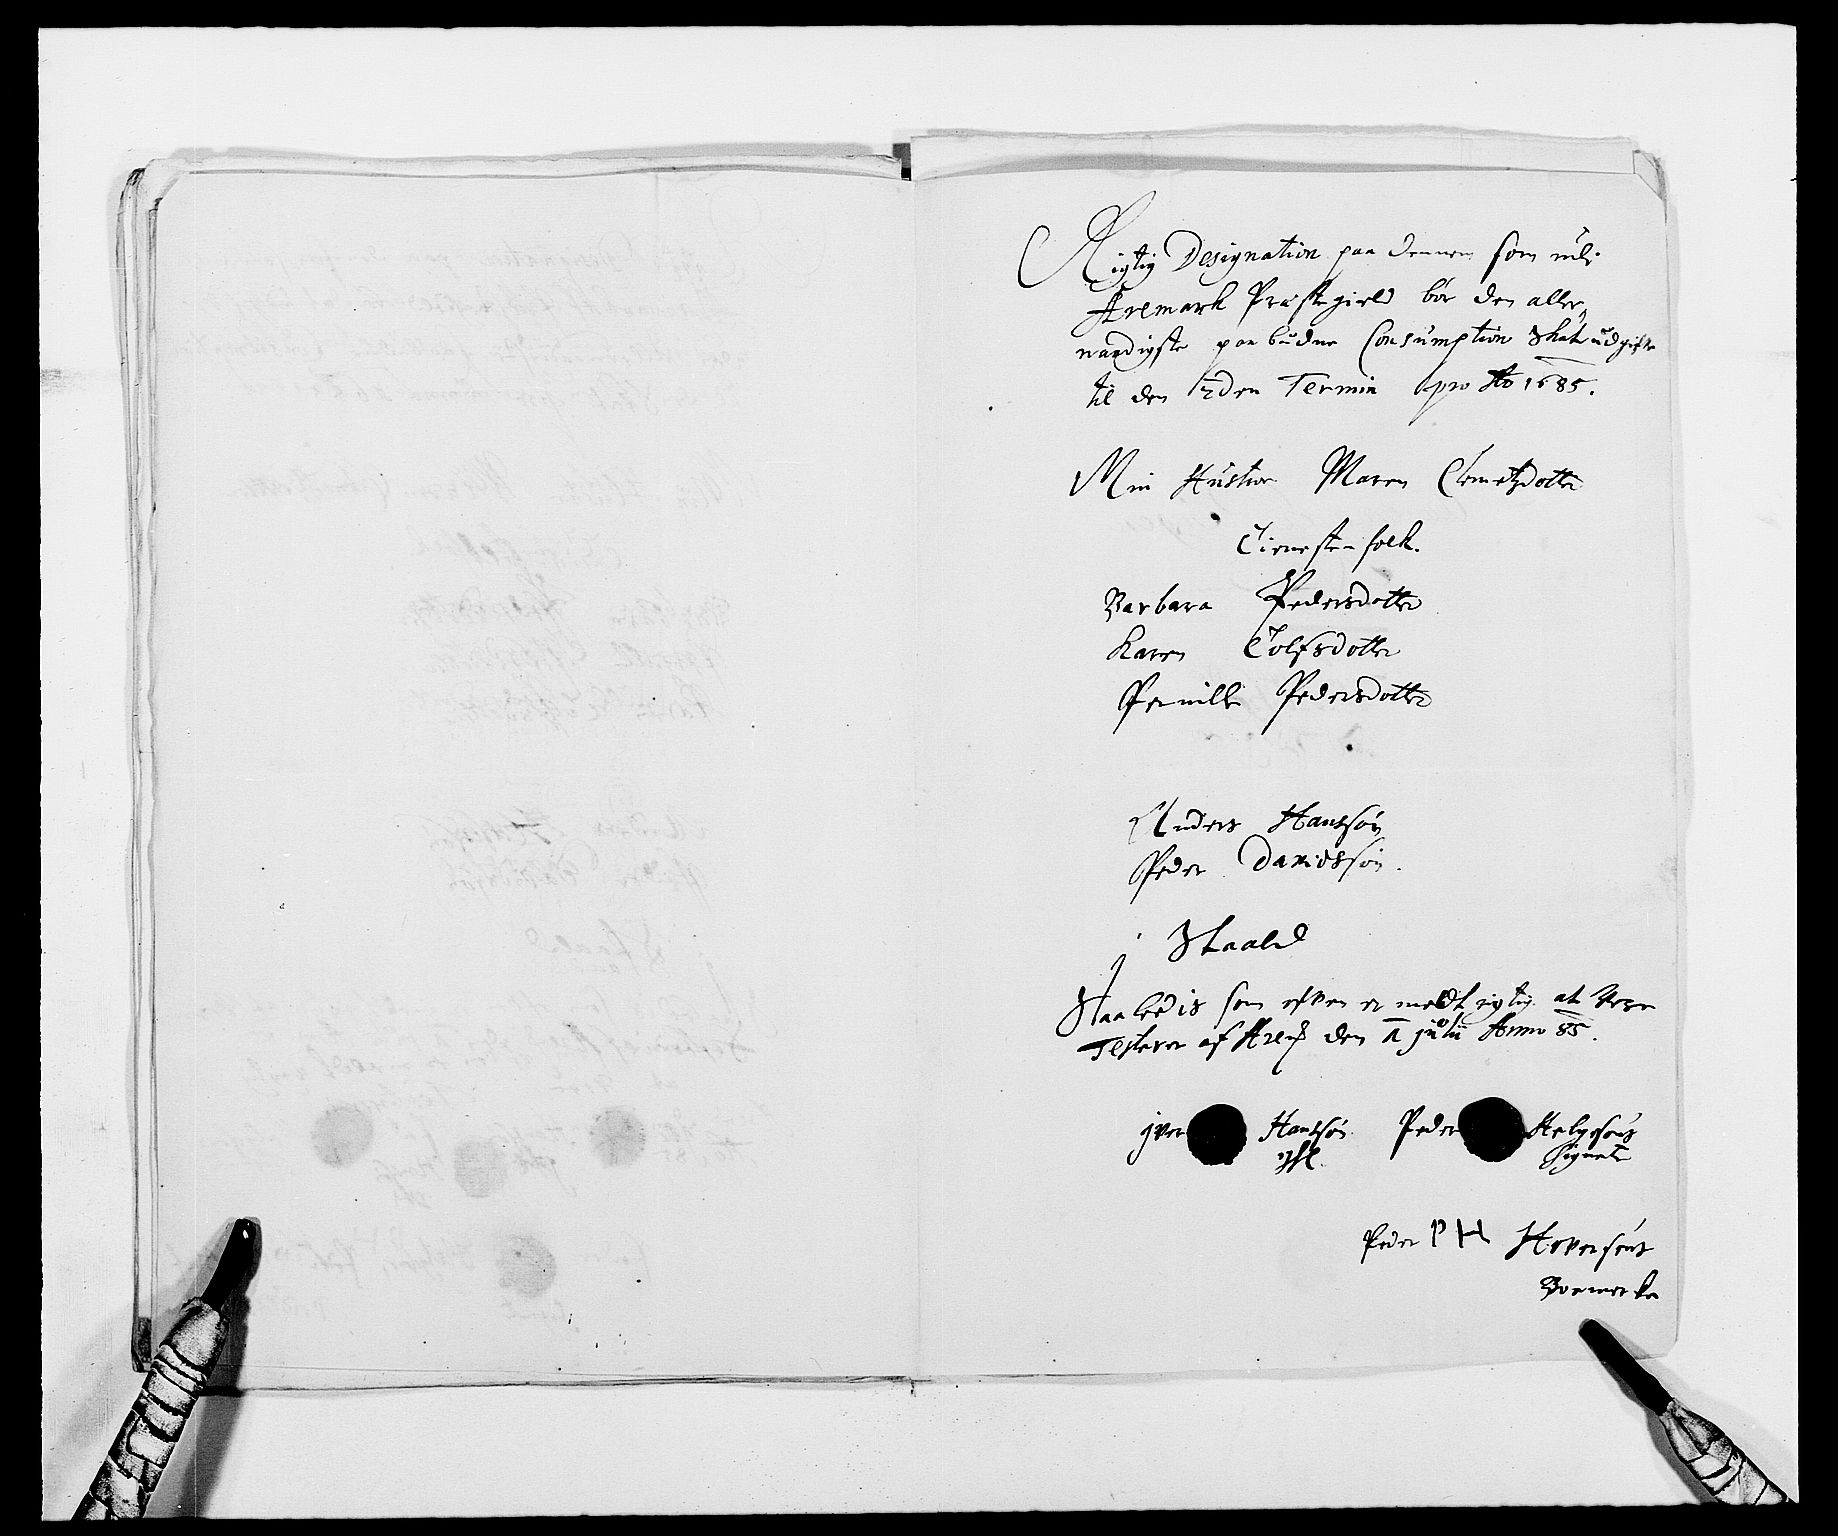 Rigtig Designation paa dennem som udj
Aremark Præstegield bør den aller,
naadigste paabudne Consumption Skat udgifte
til den 2den Termin pro Ao 1685.
Min Hustroe Maren Clemetzdotter
Tieneste folk.
Barbara Pedersdotter
Karen Tolfsdotter
Pernille Pedersdotter
Anders Hanssøn
Peder Davidssøn.
j Skaaled
Skaaledis som ofven er meldt rigtig at Være
Testerer af den julii Anno 85.
jver Hanssøn Peder Helgesøns
Signete
Peder PH Hoversøns
Boemerke